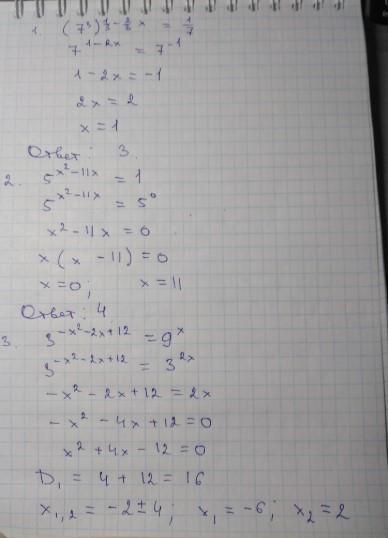 1. (7³)^(1/3 - 2/3 x) = 1/7
7^(1-2x) = 7^(-1)
1 - 2x = -1
2x = 2
x = 1
Ответ: 3.
2. 5^(x²-11x) = 1
5^(x²-11x) = 5⁰
x² - 11x = 0
x (x - 11) = 0
x = 0; x = 11
Ответ: 4
3. 3^(-x²-2x+12) = 9^x
3^(-x²-2x+12) = 3^(2x)
-x² - 2x + 12 = 2x
-x² - 4x + 12 = 0
x² + 4x - 12 = 0
D₁ = 4 + 12 = 16
x₁,₂ = -2 ± 4; x₁ = -6; x₂ = 2